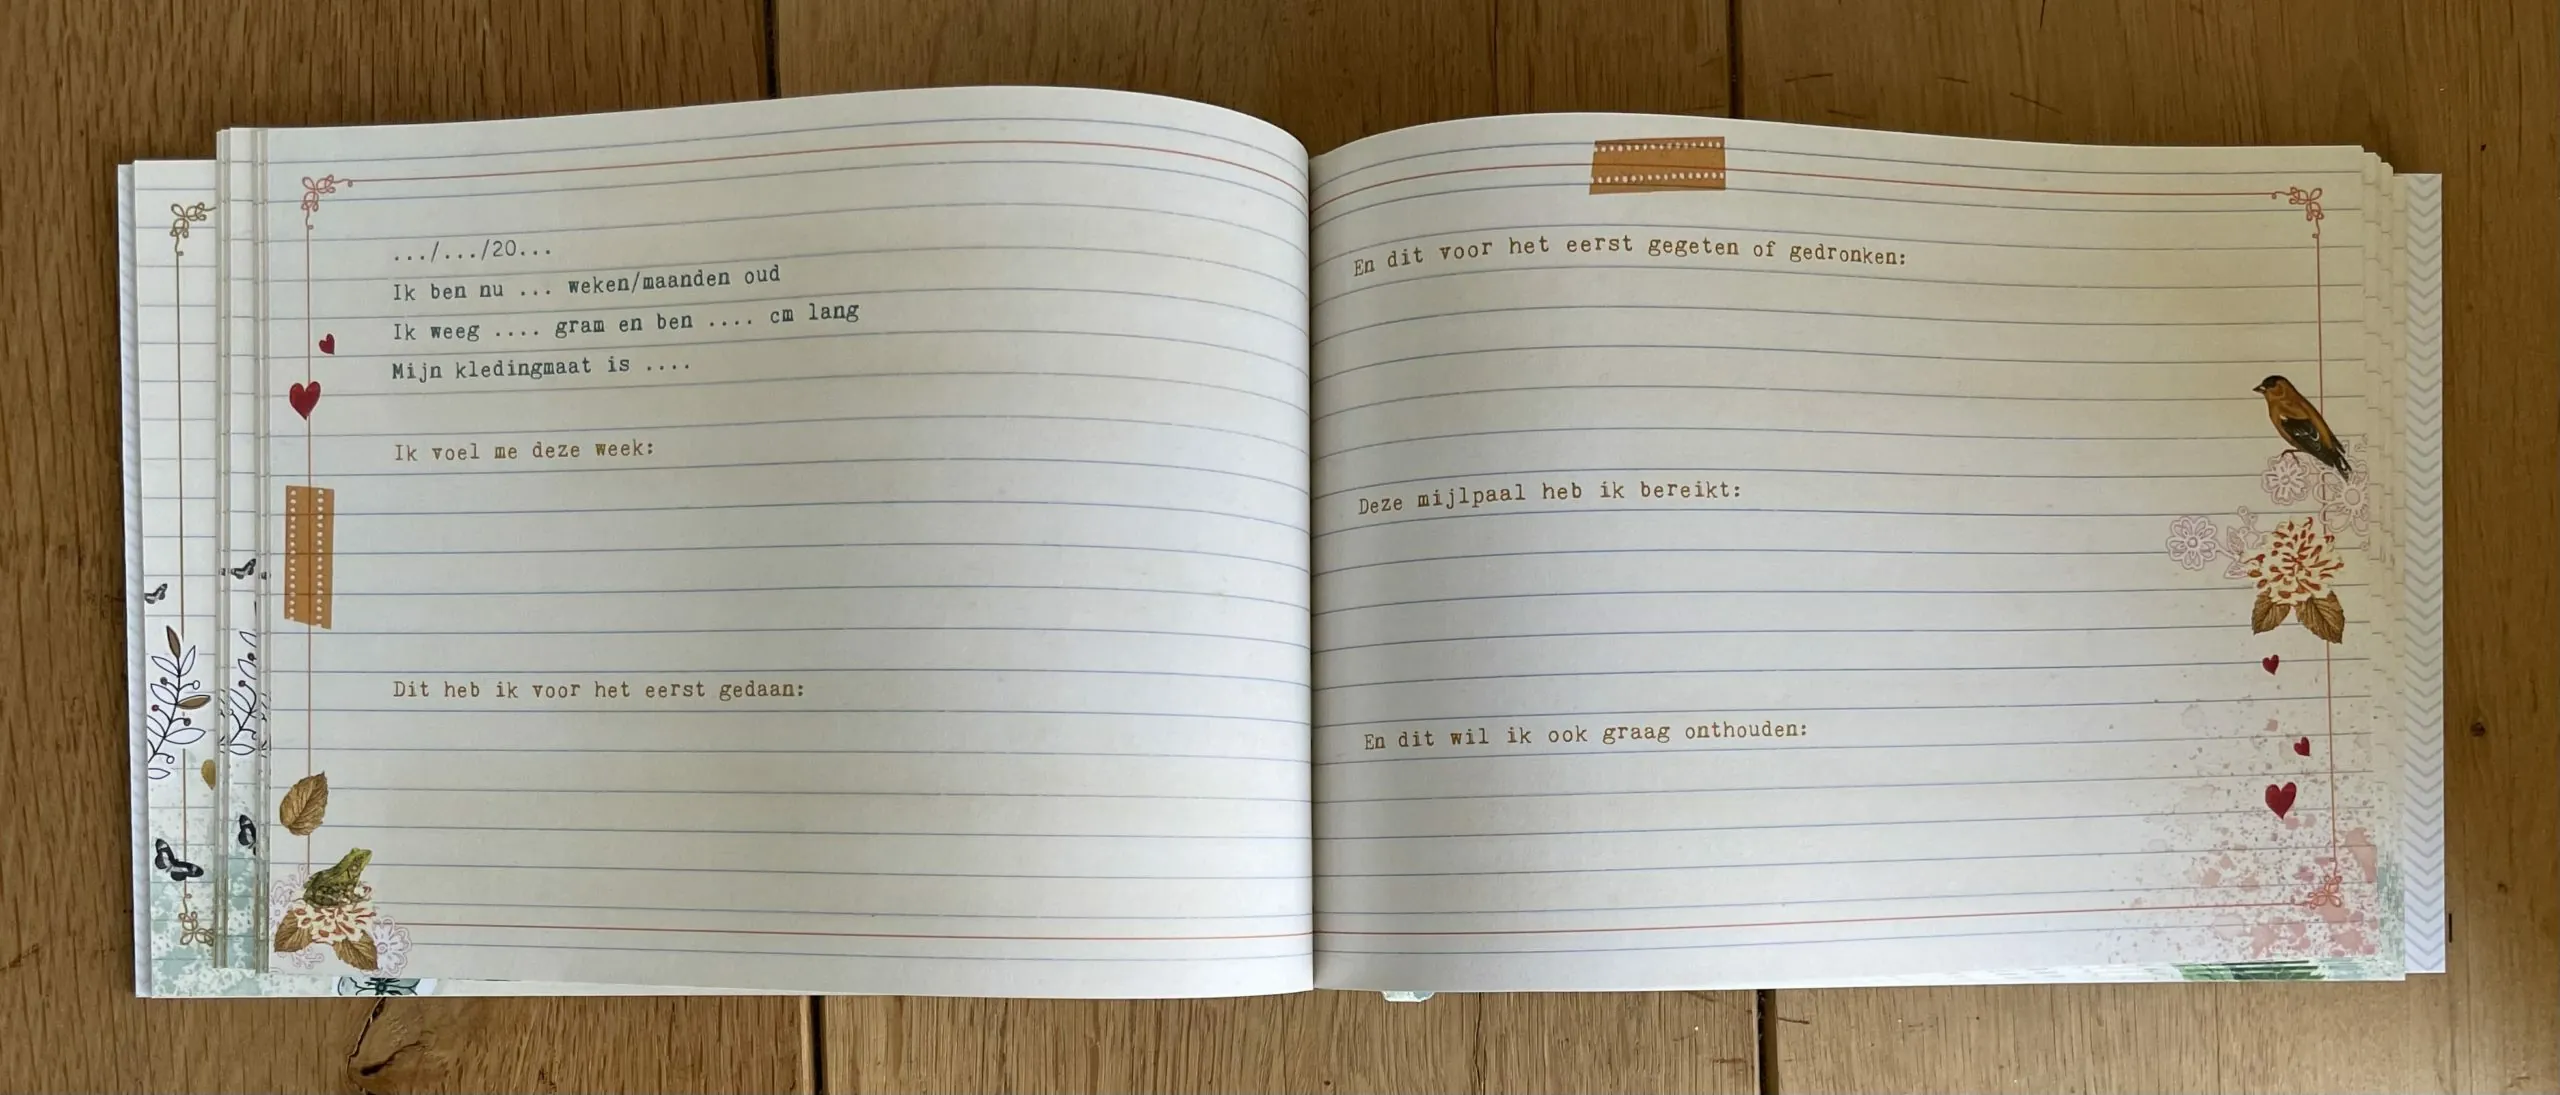 .../.../20...
Ik ben nu ... weken/maanden oud
Ik weeg .... gram en ben .... cm lang
Mijn kledingmaat is ....
Ik voel me deze week:
Dit heb ik voor het eerst gedaan:
En dit voor het eerst gegeten of gedronken:
Deze mijlpaal heb ik bereikt:
En dit wil ik ook graag onthouden: